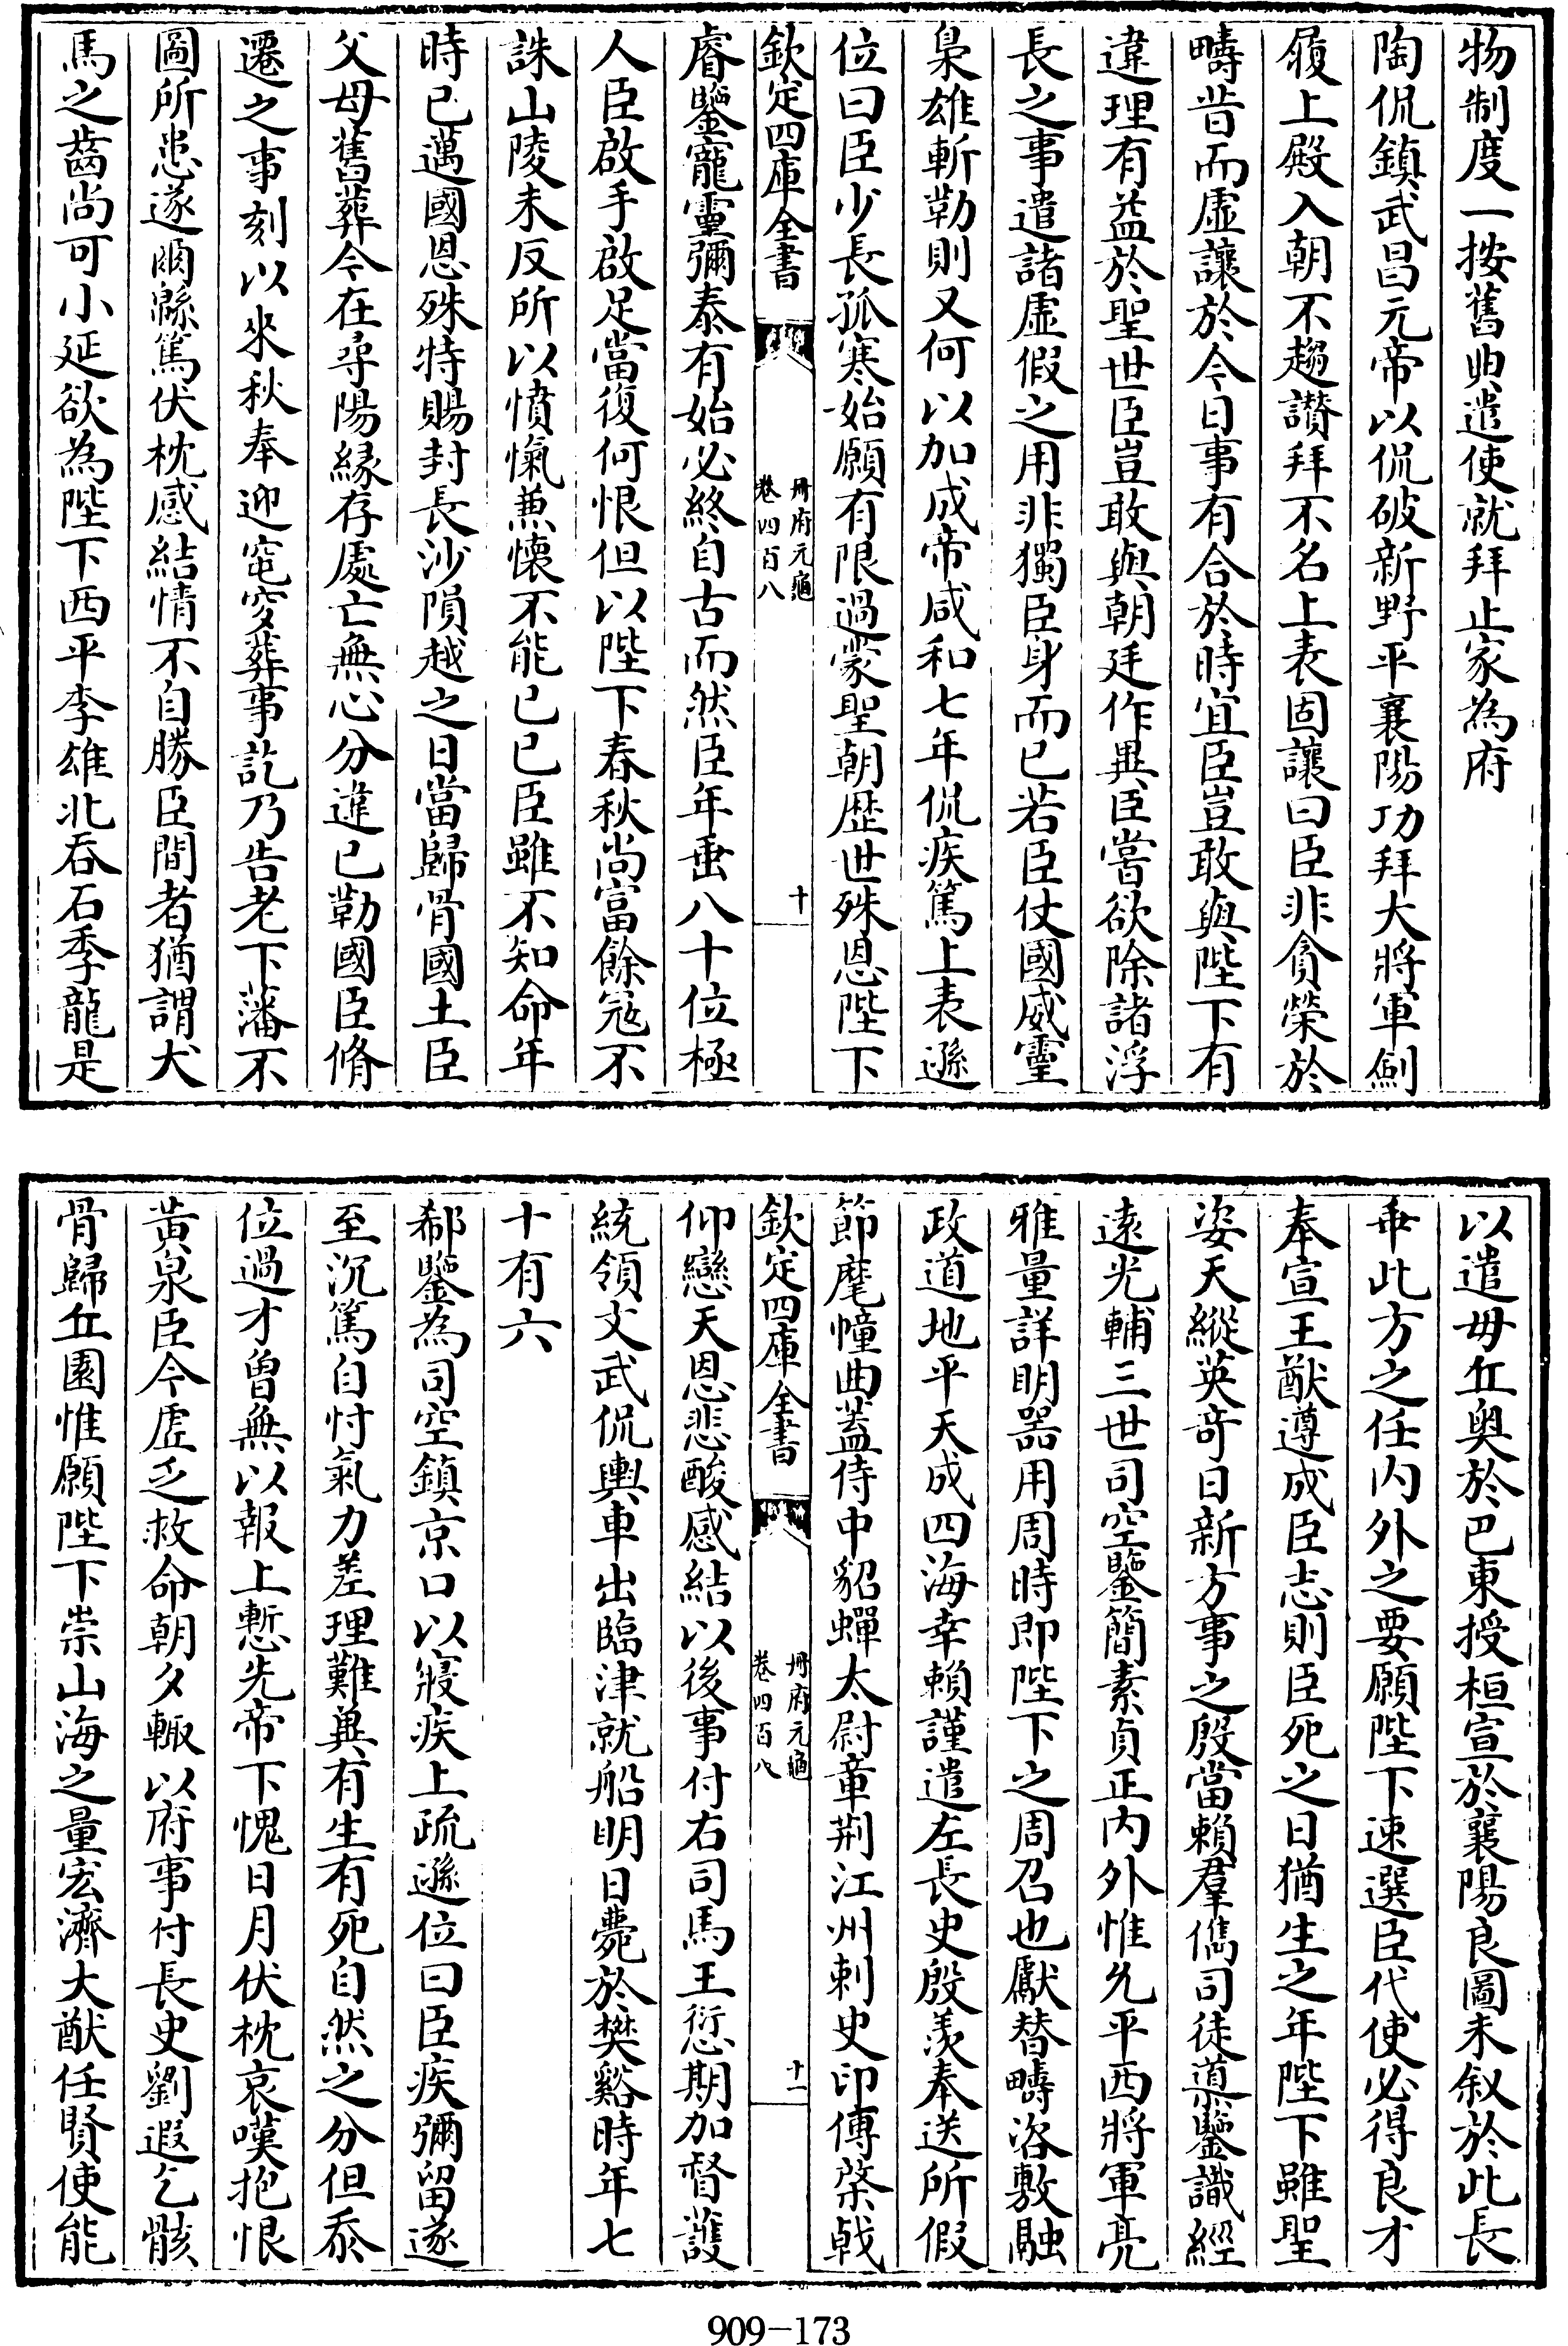 物制度一按舊典遣使就拜止家為府
陶侃鎮武昌元帝以侃破新野平襄陽功拜大將軍劍
履上殿入朝不趨讃拜不名上表固讓曰臣非貪榮於
疇昔而虛讓於今日事有合於時宜臣豈敢與陛下有
違理有益於聖世臣豈敢與朝廷作異臣嘗欲除諸浮
長之事遣諸虛假之用非獨臣身而已若臣仗國威靈
梟雄斬勒則又何以加成帝咸和七年侃疾篤上表遜
位曰臣少長孤寒始願有限過蒙聖朝歴世殊恩陛下
欽定四庫全書
冊府元龜
卷四百八
十
睿鑒寵靈彌泰有始必終自古而然臣年垂八十位極
人臣啟手啟足當復何恨但以陛下春秋尚富餘冦不
誅山陵未反所以憤愾兼懷不能已已臣雖不知命年
時已邁國恩殊特賜封長沙隕越之日當歸骨國土臣
父母舊葬今在尋陽緣存處亡無心分違已勒國臣脩
遷之事刻以來秋奉迎窀穸葬事訖乃告老下藩不
圖所患遂爾緜篤伏枕感結情不自勝臣間者猶謂犬
馬之齒尚可小延欲為陛下西平李雄北吞石季龍是
以遣毋丘奥於巴東授桓宣於襄陽良圖未叙於此長
乖此方之任内外之要願陛下速選臣代使必得良才
奉宣王猷遵成臣志則臣死之日猶生之年陛下雖聖
姿天縱英奇日新方事之殷當賴羣儁司徒導鑒識經
遠光輔三世司空鑒簡素貞正内外惟允平西將軍亮
雅量詳明器用周時即陛下之周召也獻替疇咨敷融
政道地平天成四海幸賴謹遣左長史殷羨奉送所假
節麾幢曲蓋侍中貂蟬太尉章荆江州刺史印傳棨戟
欽定四庫全書
冊府元龜
卷四百八
十一
仰戀天恩悲酸感結以後事付右司馬王愆期加督護
統領文武侃輿車出臨津就船明日薨於樊谿時年七
十有六
郗鑒為司空鎮京口以寢疾上疏遜位曰臣疾彌留遂
至沉篤自忖氣力差理難兾有生有死自然之分但忝
位過才曽無以報上慙先帝下愧日月伏枕哀嘆抱恨
黃泉臣今虛乏救命朝夕輙以府事付長史劉遐乞骸
骨歸丘園惟願陛下崇山海之量宏濟大猷任賢使能
909-173